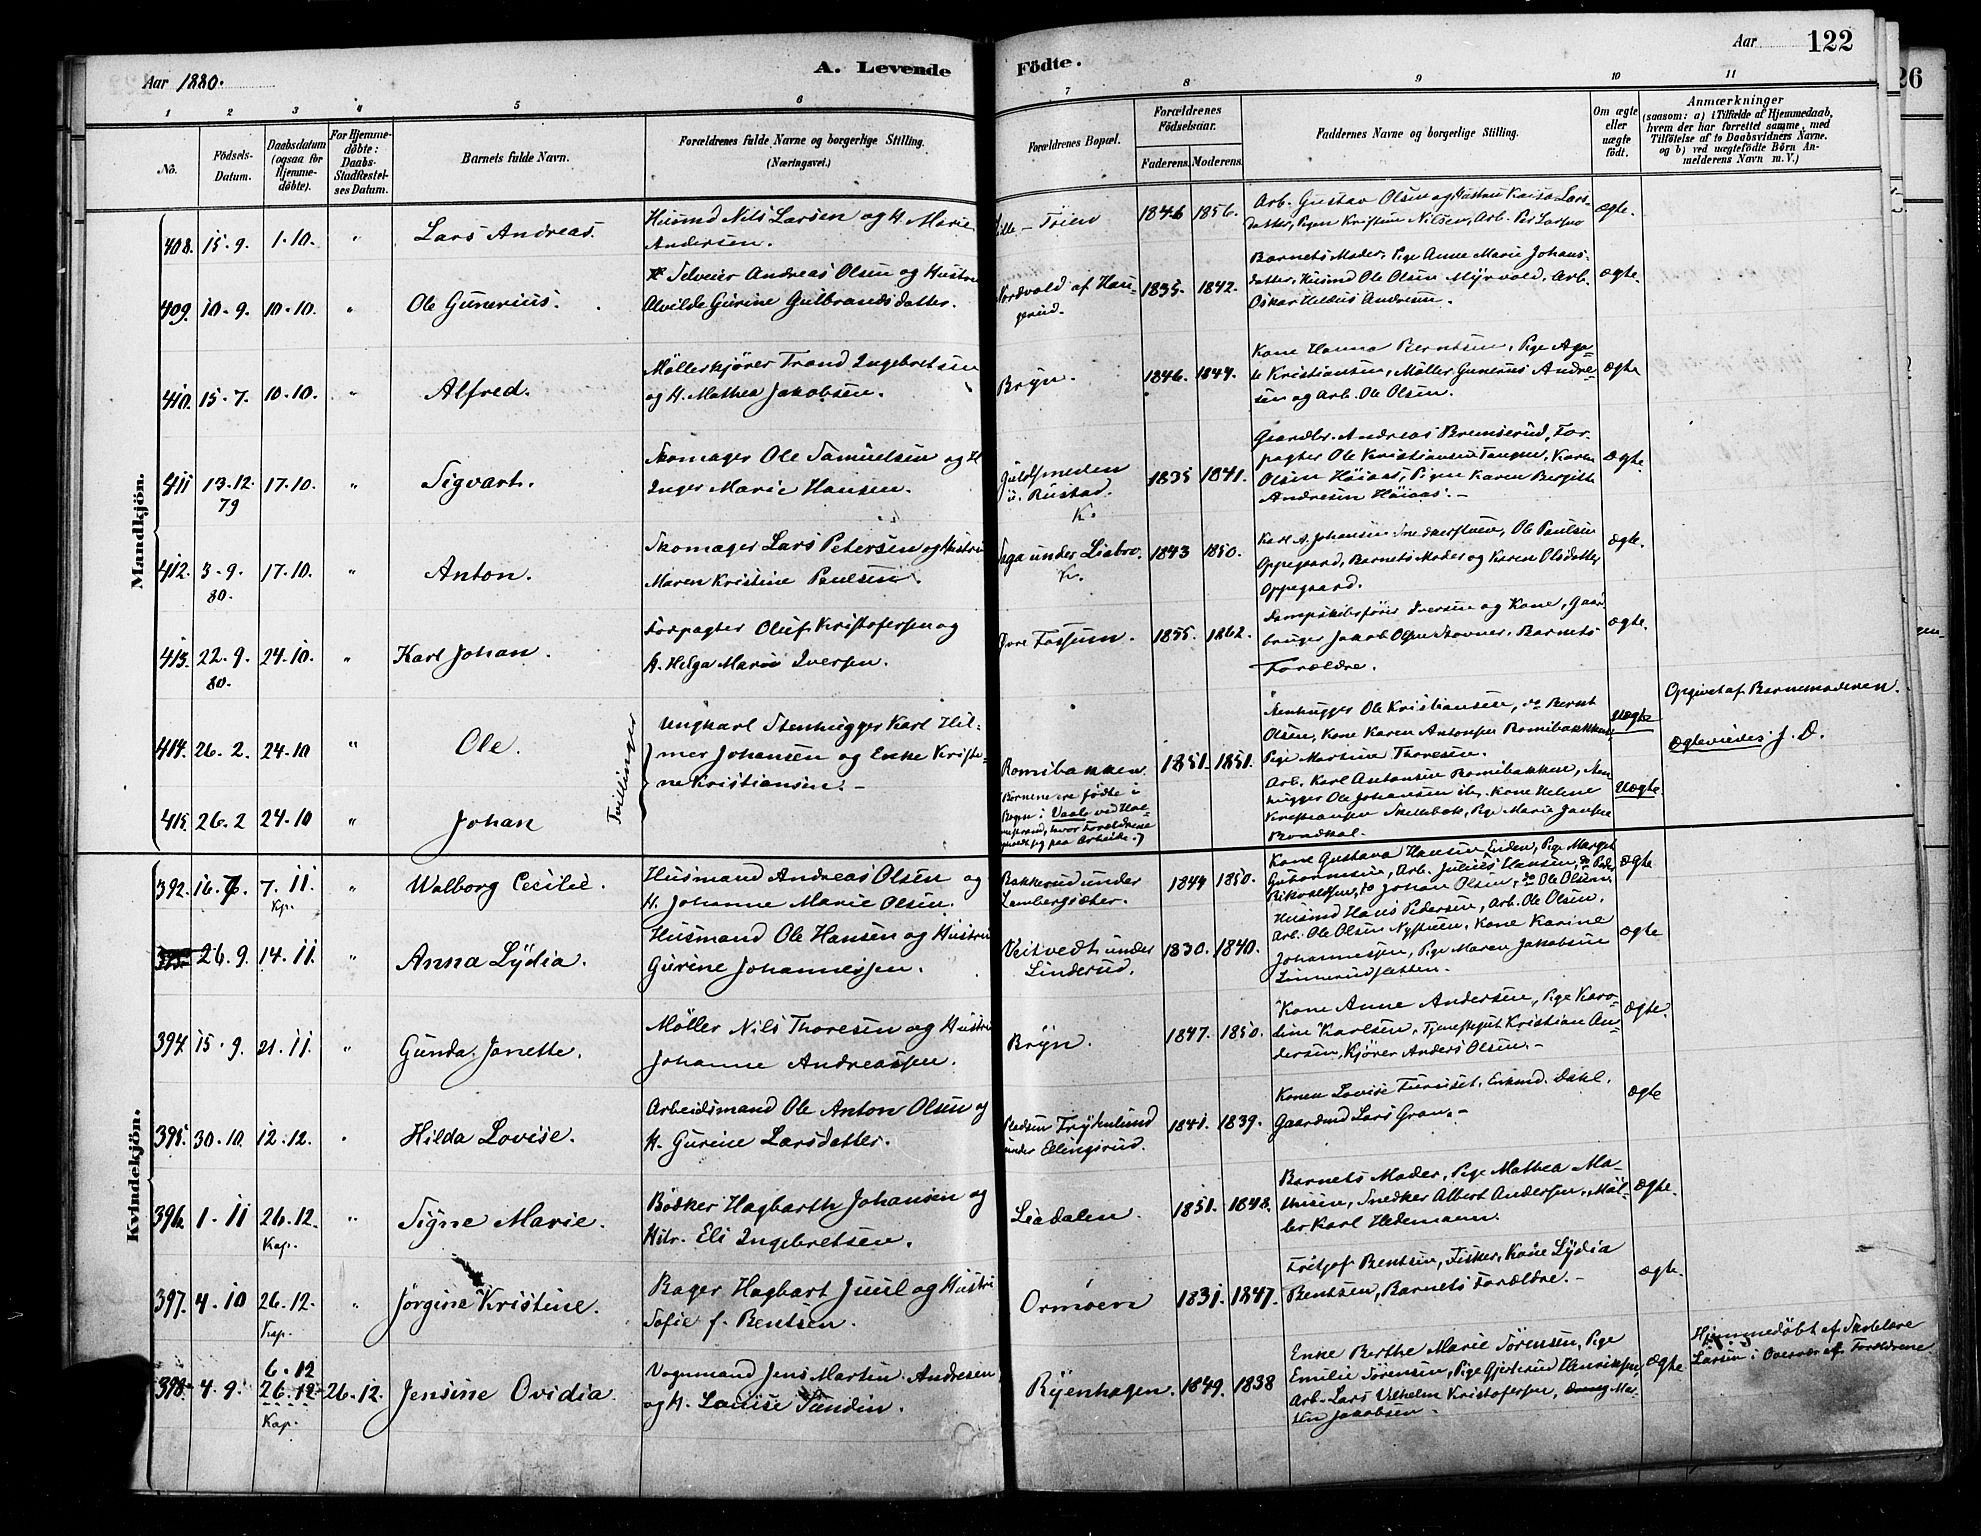 Aar 1880.
A. Levende
Födte.
Aar
122
26
1 2 3 4 5 6 7 8 9 10 11
No.
Födsels-Datum.
Daabsdatum (ogsaa for Hjemme-döbte).
For Hjemme-döbte: Daabs-Stadfæstel-ses Datum.
Barnets fulde Navn.
Forældrenes fulde Navne og borgerlige Stilling. (Næringsvei.)
Forældrenes Bopæl.
Forældrenes Födselsaar.
Faderens. Moderens.
Faddernes Navne og borgerlige Stilling.
Om ægte eller uægte födt.
Anmærkninger
(saasom: a) i Tilfælde af Hjemmedaab,
hvem der har forrettet samme, med
Tilföielse af to Daabsvidners Navne.
og b) ved uægtefödte Börn An-
melderens Navn m. V.)
Mandkjön.
408. 15-9. 1-10. " Lars Andreas.
Husmd Nils Larsen og H. Marie
Andersen.
Lille-Töien 1846 1856.
Arb. Gustav Olsen og Hustru Kaisa Lars-
datter, Pigen Kristine Nilsen, Arb. Per Larsen
Ægte.
409. 10-9. 10-10. " Ole Gunerius.
Selveier Andreas Olsen og Hustru
Alvilde Gurine Gulbrandsdatter.
Nordvold af Hau-
gerud.
1835. 1842.
Barnets Moder, Pige Anne Marie Johans-
datter, Husmd Ole Olsen Myrvold, Arb.
Oskar Andresen.
Ægte.
410. 15-7. 10-10. " Alfred.
Möllerkjörer Trond Ingebretsen
og H. Mathea Jakobsen.
Bryn. 1846. 1849.
Kone Hanna Berntsen, Pige Aga-
te Kristiansen, Möller Gunerius Andre-
sen og Arb. Ole Olsen.
Ægte
411 13-12. 17.10. " Sigvart.
79
Skomager Ole Samuelsen og H
Inger Marie Hansen.
u. Rustad.
K.
1835 1841.
Gaardbr. Andreas Bremserud, For-
pagter Ole Kristiansen Tangen, Karen
Olsen Höiaas, Pigen Karen Bergitte
Andresen Höiaas.-
Ægte.
412. 3-9. 17.10. " Anton.
80.
Skomager Lars Petersen og Hustru
Maren Kristine Paulsen.
under Liabro.
K.
1843 1850.
Karl A. Johansen Snedkerstuen, Ole Paulsen
Oppegaard, Barnets Moder og Karen Olsdatter
Oppegaard.
Ægte.
413. 22.9. 24.10. " Karl Johan.
80.
Forpagter Oluf Kristofersen og
H. Helga Marie Iversen.
Övre Fossum. 1855. 1862.
Dampskibsförer Iversen og Kone, Gaard-
bruger Jakob Olsen Stovner, Barnets
Forældre.
Ægte.
414. 26.2. 24.10 " Ole.
Tvillinger
Ungkarl Stenhugger Karl Hil-
mer Johansen og Enke Kristi-
ne Kristiansen.-
Romibakken.
Börnene ere födte i
1851. 1851.
Stenhugger Ole Kristiansen, do Bernt
Olsen, Kone Karen Antonsen Romibakken,
Pige Martine Thoresen.
Uægte
Opgivet af Barnemoderen.
Ægteviedes J. D.
415. 26.2 24.10 " Johan
Arb. Karl Antonsen Romibakken, Sten-
hugger Ole Johansen ib., Kone Helene
Kristiansen Skillebæk, Pige Marie Jansen
Uægte.
Kvindekjön.
392. 16.7. 7.11. " Walborg Cecilie.
Kp.
Husmand Andreas Olsen og
H. Johanne Marie Olsen.
Bakkerud under
Lambergsæter.
1849 1850.
Kone Gustava Hansen Enden, Pige Margit
Guttormsen, Arb. Julius Hansen, do Peder
Rikvoldsen, do Johan Olsen, do Ole Olsen.
Ægte
393. 26.9. 14.11. " Anna Lydia.
Husmand Ole Hansen og Hustru
Gurine Johannessen.
Veitvedt under
Linderud.
1830. 1840.
Husmd Hans Pedersen, Arb. Ole Olsen,
Arb. Ole Olsen Nystuen, Kone Karine
Johannessen, Pige Maren Jakobsen
Linnerudsletten.
Ægte
394. 15.9. 21.11. " Gunda Janette.
Möller Nils Thoresen og Hustru
Johanne Andreassen.
Bryn. 1847. 1850.
Kone Anne Andersen, Pige Karo-
line Karlsen, Tjenestegut Kristian An-
dersen, Kjörer Anders Olsen.-
Ægte.
395. 30.10. 12.12. " Hilda Lovise.
Arbeidsmand Ole Anton Olsen og
H. Gurine Larsdatter.
Pladsen Frydenlund
under Ellingsrud.
1841. 1839.
Konen Lovise Furuset, Enkmd. Dahl,
Gaardmd Lars Gran.-
Ægte
396. 1.11 26.12. " Signe Marie.
Kap.
Bödker Hagbarth Johansen og
Hstr. Eli Ingebretsen.
Liadalen. 1851. 1848.
Barnets Moder, Pige Mathea Ma-
thisen, Snedker Albert Andersen, Mal-
er Karl Hedemann.
Ægte.
397. 4.10 26.12. " Jörgine Kristine.
Kap.
Bager Hagbart Juul og Hustru
Sofie f. Bentsen.
Ormöen 1831. 1847.
Fritjof Bentsen, Fisker, Kone Lydia
Bentsen, Barnets Forældre.-
Ægte.
398. 4.9. 6.12 26.12. 26.12. Jensine Ovidia.
Kap.
Vognmand Jens Martin Andresen
og H. Louise Sundin.
Ryenhagen. 1849. 1838
Enke Berthe Marie Sörensen, Pige
Emilie Sörensen, Pige Gjertrud Henriksen,
Arb. Lars Vilhelm Kristofersen, Ma-
Jakobsen.
Ægte
Hjemmedöbt af Skolelærer
Larsen i Overvær af Forældrene.